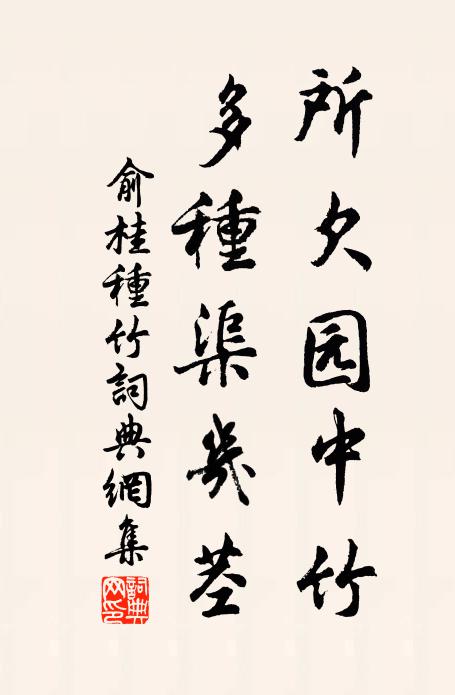 所欠园中竹
多種渠幾茎
俞桂種竹詞典網集
詞典网印